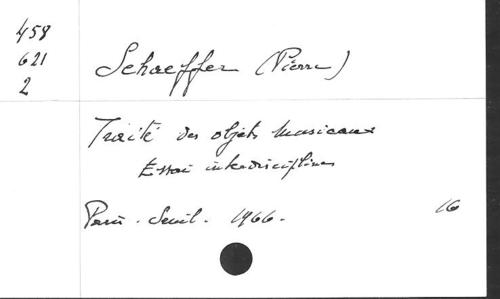 458
621
2
Schaeffer (Pierre)
Traité des objets musicaux
Essai interdisciplines
Paris. Seuil. 1966.
16